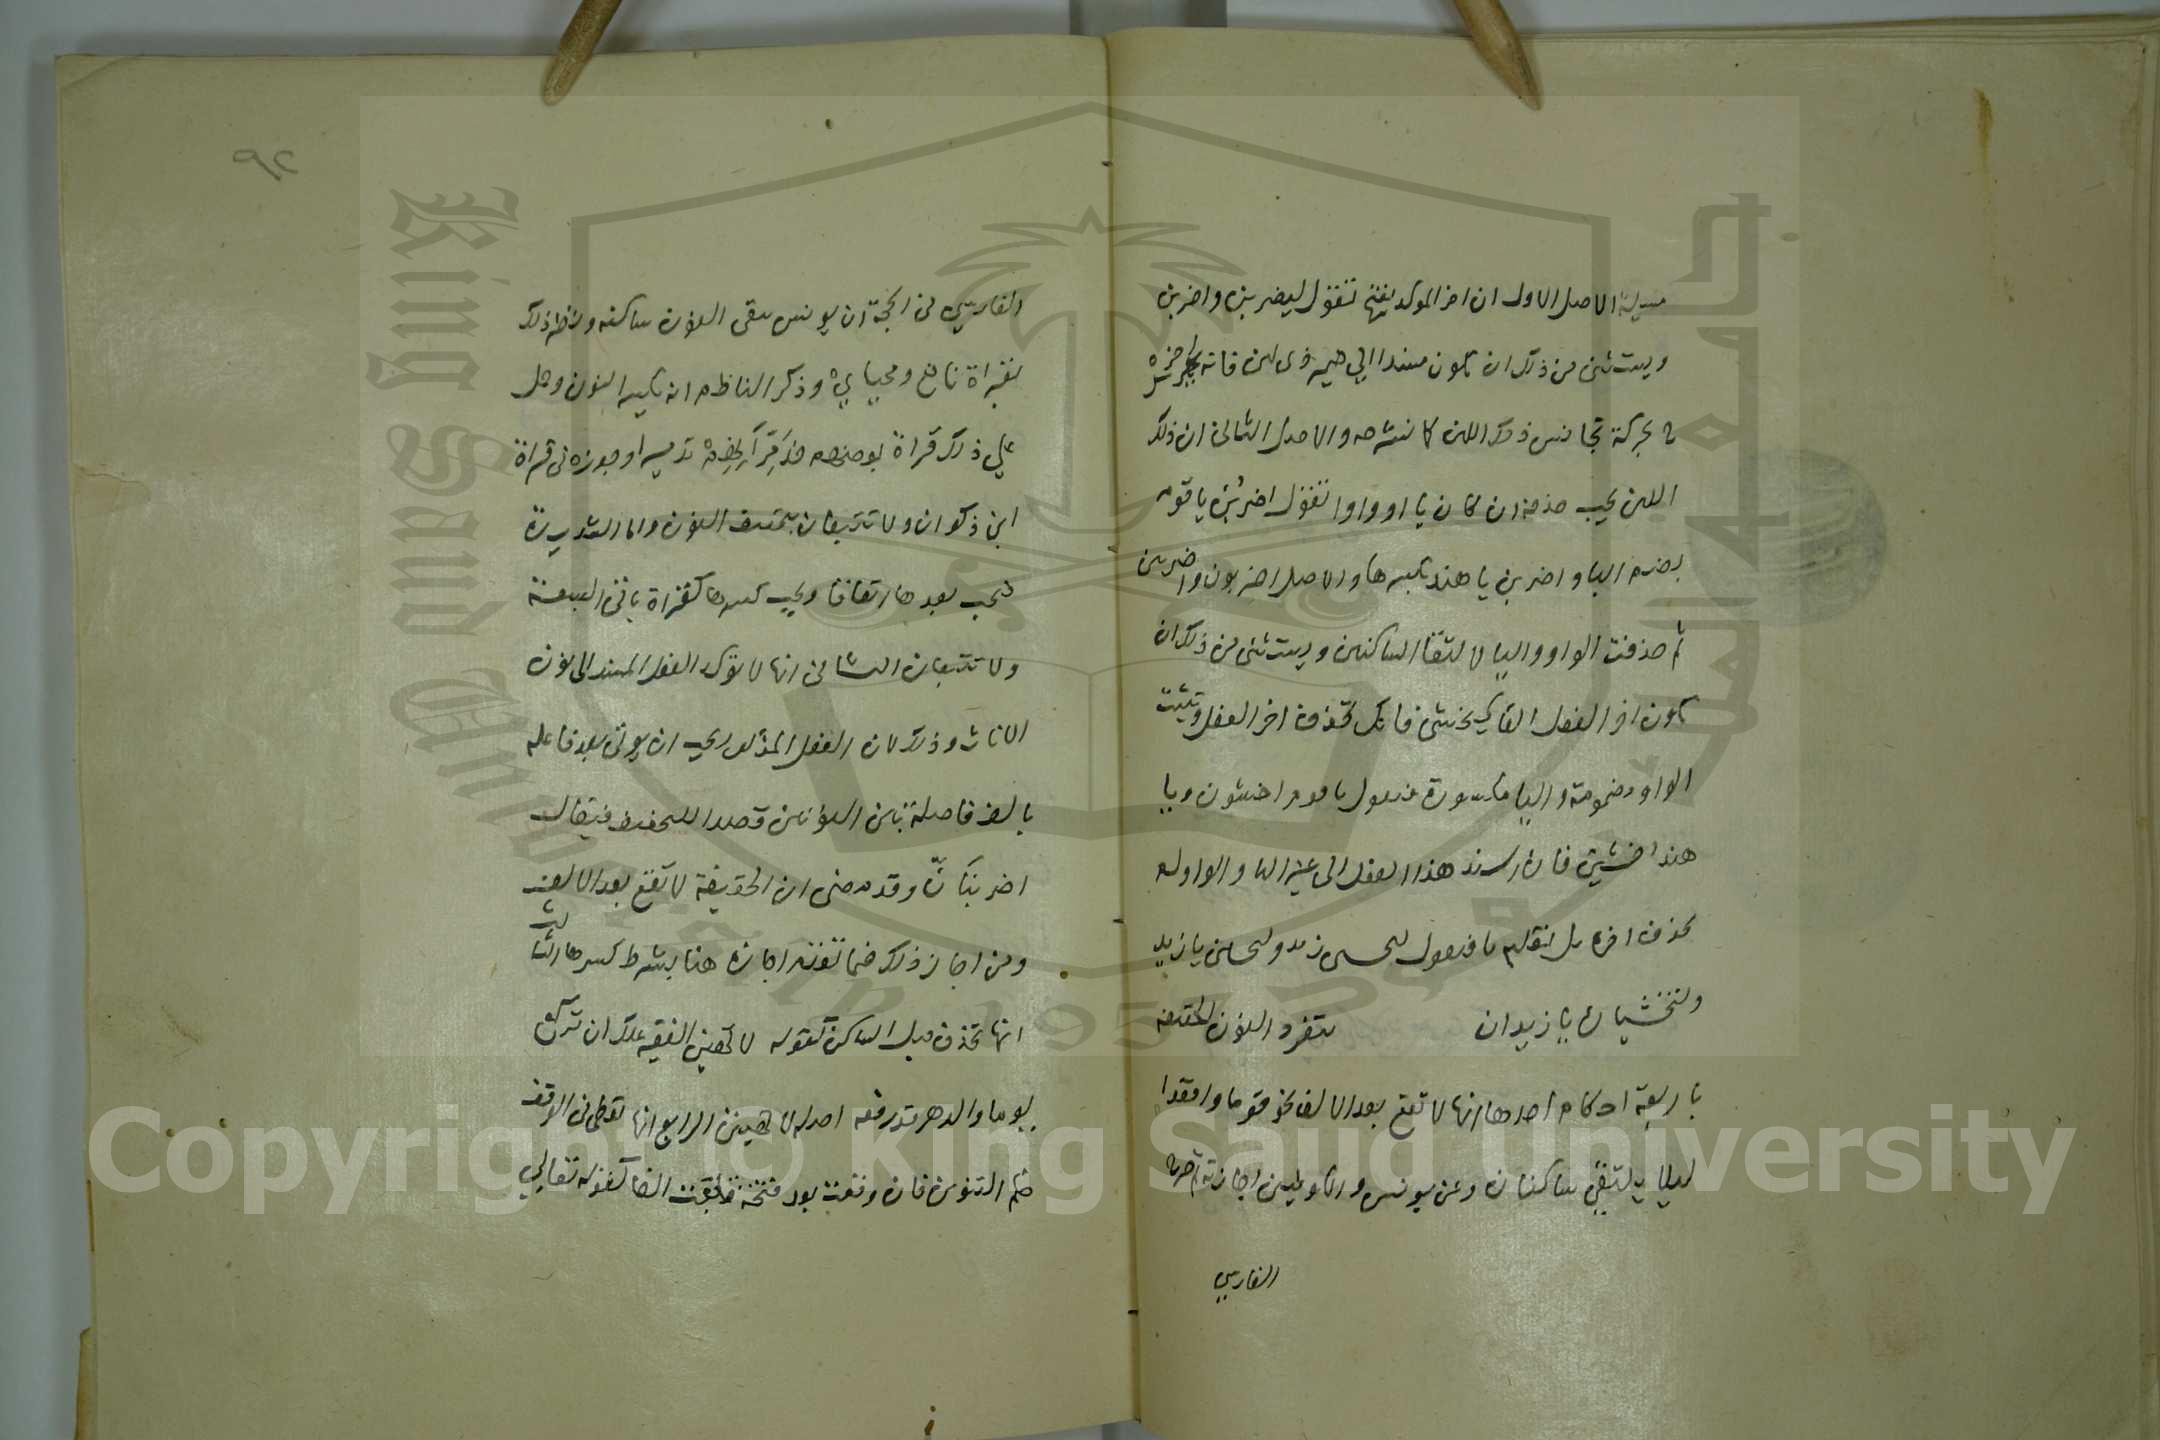 مسيلة الاصل الاول ان اخر الموكد يفتح تقول ليضربن واضربن
ويستثنى من ذلك ان يكون مسندا الي ضمير ذي لين فانه يحرك اخره
ح بحركة تجانس ذلك اللين كما نشرحه والاصل الثاني ان ذلك
اللين يجب حذفه ان كان يا او واوا تقول اضربن يا قوم
بضم البا واضربن يا هند بكسرها والاصل اضربون واضربين
ثم حذفت الواو واليا لالتقا الساكنين ويستثنى من ذلك ان
يكون اخر الفعل الفا كيخشى فانك تحذف اخر الفعل وتثبت
الواو مضمومة واليا مكسورة فتقول يا قوم اخشون ويا
هند اخشين فان اسند هذا الفعل الى غير اليا والواو لم
تحذف اخره بل تقلبه يا فتقول ليخشين زيد ولتخشين يا زيد
ولتخشيان يا زيدان تنفرد النون الخفيفة
باربعة احكام احدها انها لا تقع بعد الالف نحو قوما واقعدا
ليلا يلتقي ساكنان وعن يونس والكوفيين اجازته ثم صرح
الفارسي
٩٢
الفارسي في الحجة ان يونس يبقى النون ساكنة ونظر ذلك
بقراة نافع ومحياي وذكر الناظم انه يكسر النون وحمل
علي ذلك قراة بعضهم فدمرانهم تدميرا وجوزه في قراة
ابن ذكوان ولا تتبعان بتخفيف النون واما الشديدة
فتجب بعدها اتفاقا ويجب كسرها كقراة باقي السبعة
ولا تتبعان الثاني انها لا توكد الفعل المسند الى نون
الاناث وذلك لان الفعل المذكور يجب ان يوتى بعد فاعله
بالف فاصلة بين النونين قصدا للتخفيف فيقال
اضربنان وقد مضى ان الخفيفة لا تقع بعد الالف
ومن اجاز ذلك فيما تقدم اجازه هنا بشرط كسرها الثالث
انها تحذف قبل الساكن كقوله لا تهين الفقير علك ان تركع
يوما والدهر قد رفعه اصله لا تهينن الرابع انها تعطى في الوقف
حكم التنوين فان وقعت بعد فتحة قلبت الفا كقوله تعالي
Copyright © King Saud University